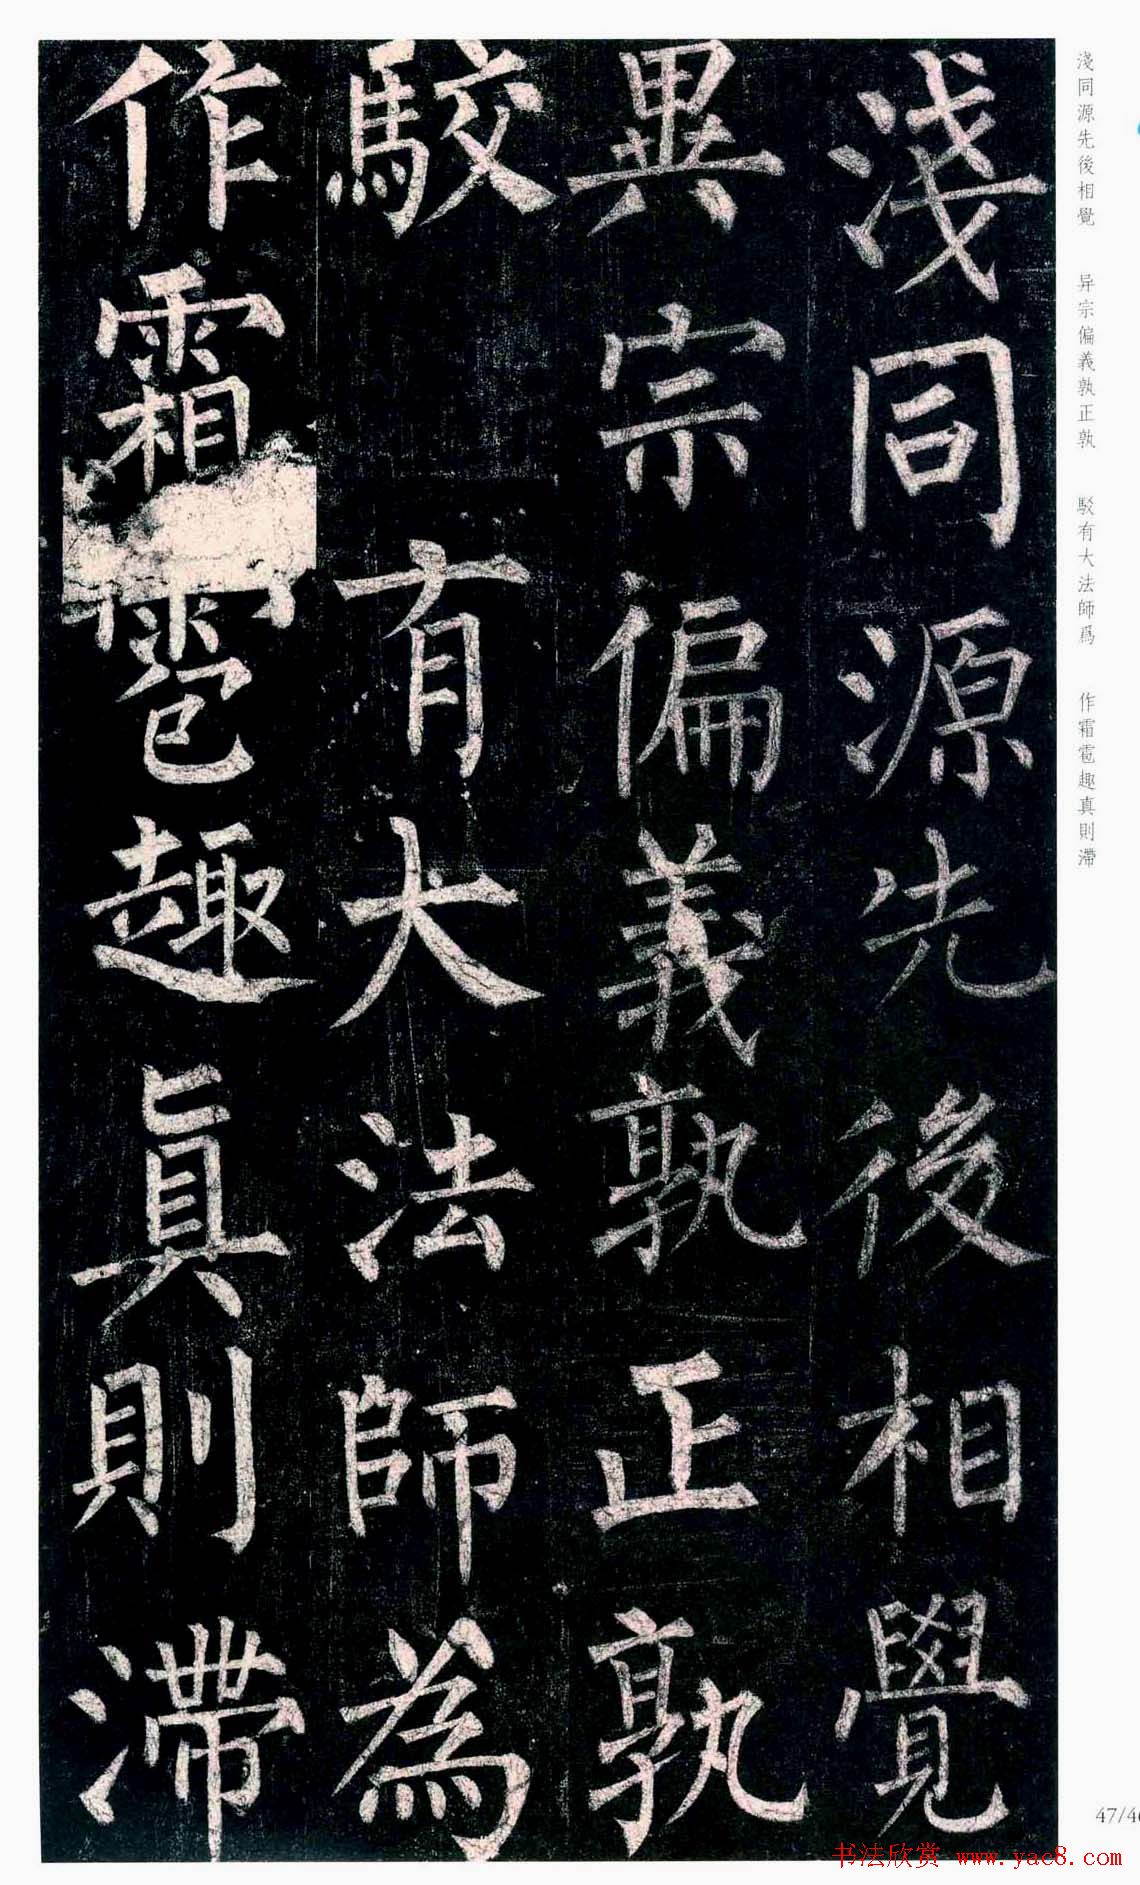 淺同源先後相覺
異宗偏義孰正孰
駮有大法師為
作霜雹趣真則滯
淺同源先後相覺 异宗偏義孰正孰 駁有大法師爲 作霜雹趣真則滯
47/46
书法欣赏 www.yac8.com